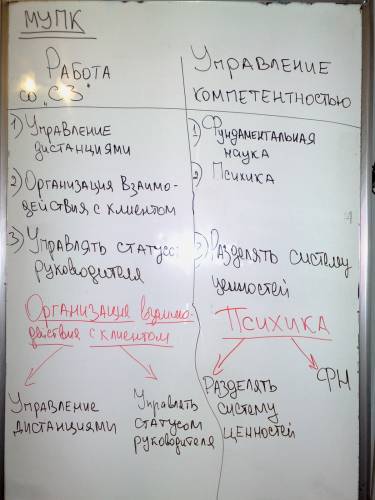 МУПК
РАБОТА
СО „СЗ"
1) УПРАВЛЕНИЕ
ДИСТАНЦИЯМИ
2) ОРГАНИЗАЦИЯ ВЗАИМО-
ДЕЙСТВИЯ С КЛИЕНТОМ
3) УПРАВЛЯТЬ СТАТУСО
РУКОВОДИТЕЛЯ
ОРГАНИЗАЦИЯ ВЗАИМО-
ДЕЙСТВИЯ С КЛИЕНТОМ
УПРАВЛЕНИЕ
ДИСТАНЦИЯМИ
УПРАВЛЯТЬ
СТАТУСОМ
РУКОВОДИТЕЛЯ
УПРАВЛЕНИЕ
КОМПЕТЕНТНОСТЬЮ
1) ФУНДАМЕНТАЛЬНАЯ
НАУКА
2) ПСИХИКА
3) РАЗДЕЛЯТЬ СИСТЕМУ
ЦЕННОСТЕЙ
ПСИХИКА
РАЗДЕЛЯТЬ
СИСТЕМУ
ЦЕННОСТЕЙ
ФН